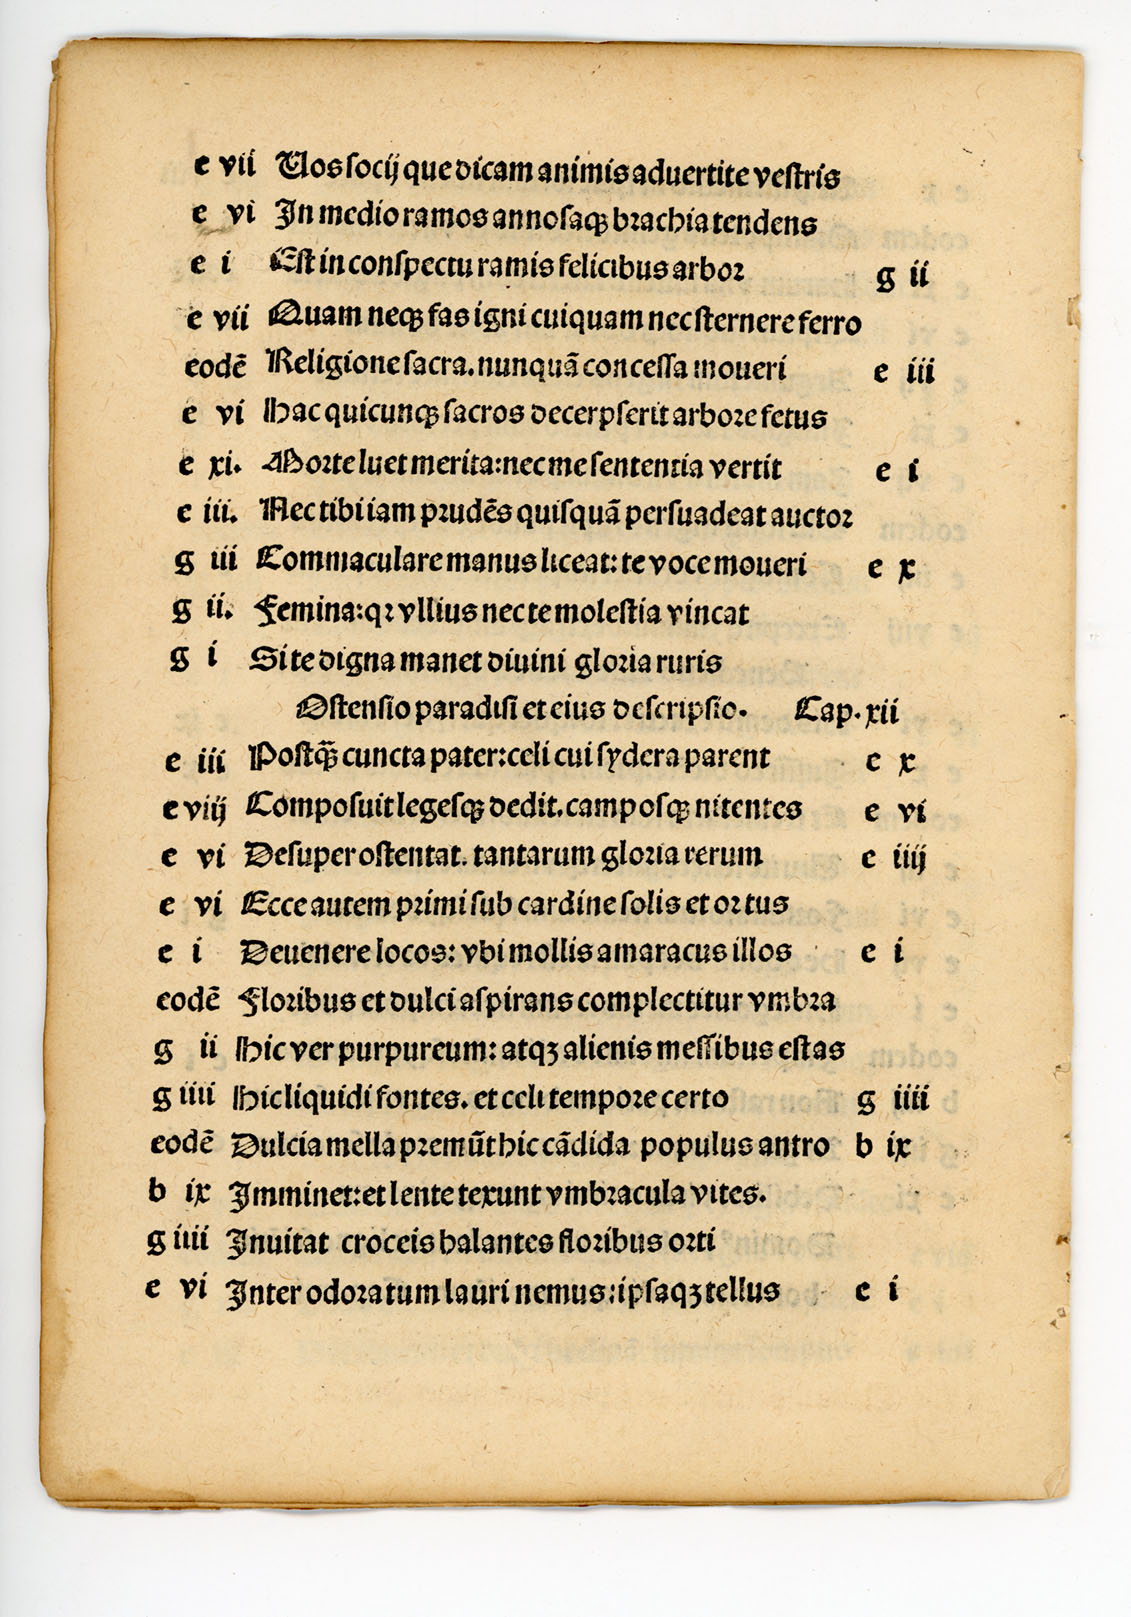 e vii Uos socij que dicam animis aduertite vestris
e vi In medio ramos annosaqꝫ brachia tendens
e i Est in conspectu ramis felicibus arbor g ii
e vii Quam neqꝫ fas igni cuiquam nec sternere ferro
eodē Religione sacra. nunquā concessa moueri e iii
e vi Hac quicunqꝫ sacros decerpserit arbore fetus
e xi. Morte luet merita: nec me sententia vertit e i
e iii. Nec tibi iam prudēs quisquā persuadeat auctor
g iii Commaculare manus liceat: te voce moueri e x
g ii. Femina: qꝛ vllius nec te molestia vincat
g i Si te digna manet diuini gloria ruris
Ostensio paradisi et eius descripsio. Cap. xii
e iii Postq̄ꝫ cuncta pater: celi cui sydera parent e x
e viij Composuit legesqꝫ dedit. camposqꝫ nitentes e vi
e vi Desuper ostentat. tantarum gloria rerum e iiij
e vi Ecce autem primi sub cardine solis et ortus
e i Deuenere locos: vbi mollis amaracus illos e i
eodē Floribus et dulci aspirans complectitur vmbra
g ii Hic ver purpureum: atqꝫ alienis messibus estas
g iiii Hic liquidi fontes. et celi tempore certo g iiii
eodē Dulcia mella premūt hic cādida populus antro b ix
b ix Imminet: et lente texunt vmbracula vites.
g iiii Inuitat croceis balantes floribus orti
e vi Inter odoratum lauri nemus: ipsaqꝫ tellus e i